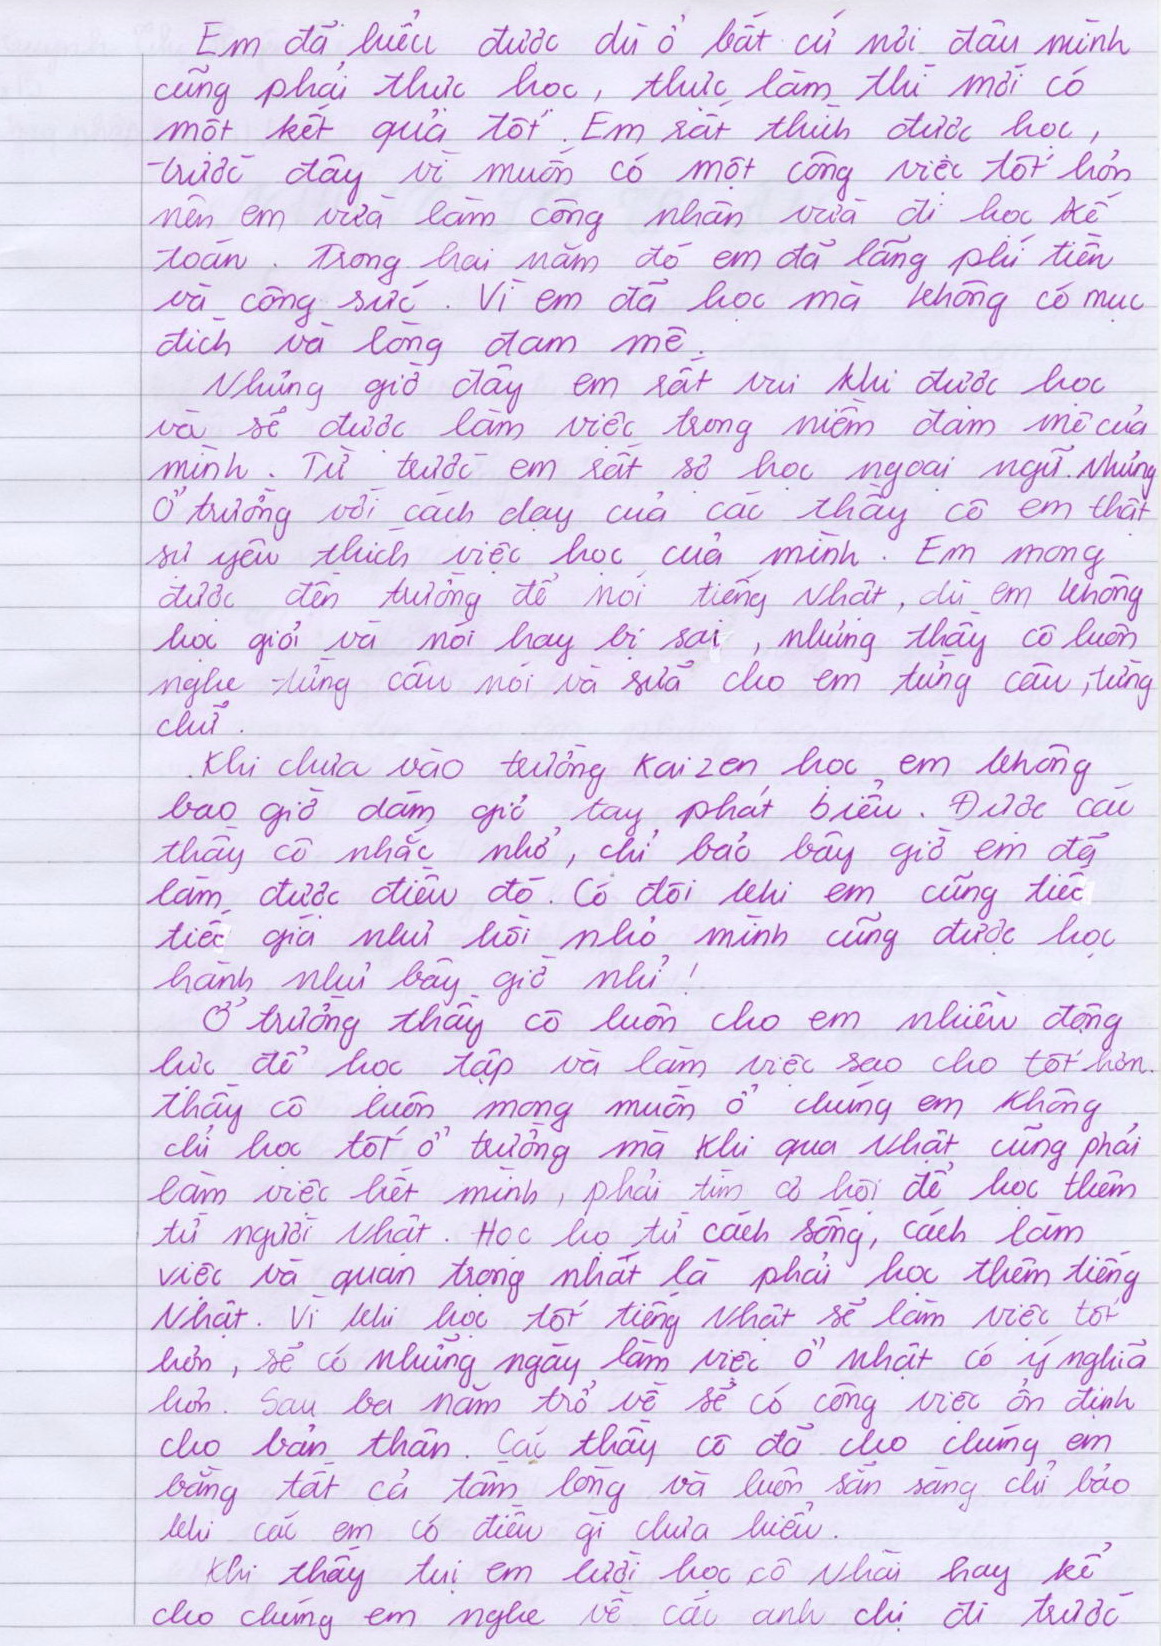 Em đã hiểu được dù ở bất cứ nơi đâu mình
cũng phải thực học, thực làm thì mới có
một kết quả tốt. Em rất thích được học,
trước đây vì muốn có một công việc tốt hơn
nên em vừa làm công nhân vừa đi học kế
toán. Trong hai năm đó em đã lãng phí tiền
và công sức. Vì em đã học mà không có mục
đích và lòng đam mê.
Nhưng giờ đây em rất vui khi được học
và sẽ được làm việc trong niềm đam mê của
mình. Từ trước em rất sợ học ngoại ngữ. Nhưng
Ở trường với cách dạy của các thầy cô em thật
sự yêu thích việc học của mình. Em mong
được đến trường để nói tiếng Nhật, dù em không
học giỏi và nói hay bị sai, nhưng thầy cô luôn
nghe từng câu nói và sửa cho em từng câu, từng
chữ.
Khi chưa vào trường Kaizen học em không
bao giờ dám giơ tay phát biểu. Được các
thầy cô nhắc nhở, chỉ bảo bây giờ em đã
làm được điều đó. Có đôi khi em cũng tiếc
tiếc giá như hồi nhỏ mình cũng được học
hành như bây giờ nhỉ!
Ở trường thầy cô luôn cho em nhiều động
lực để học tập và làm việc sao cho tốt hơn.
Thầy cô luôn mong muốn ở chúng em không
chỉ học tốt ở trường mà khi qua Nhật cũng phải
làm việc hết mình, phải tìm cơ hội để học thêm
từ người Nhật. Học họ từ cách sống, cách làm
việc và quan trọng nhất là phải học thêm tiếng
Nhật. Vì khi học tốt tiếng Nhật sẽ làm việc tốt
hơn, sẽ có những ngày làm việc ở nhật có ý nghĩa
hơn. Sau ba năm trở về sẽ có công việc ổn định
cho bản thân. Các thầy cô đã cho chúng em
bằng tất cả tấm lòng và luôn sẵn sàng chỉ bảo
khi các em có điều gì chưa hiểu.
Khi thấy tụi em lười học cô Nhài hay kể
cho chúng em nghe về các anh chị đi trước